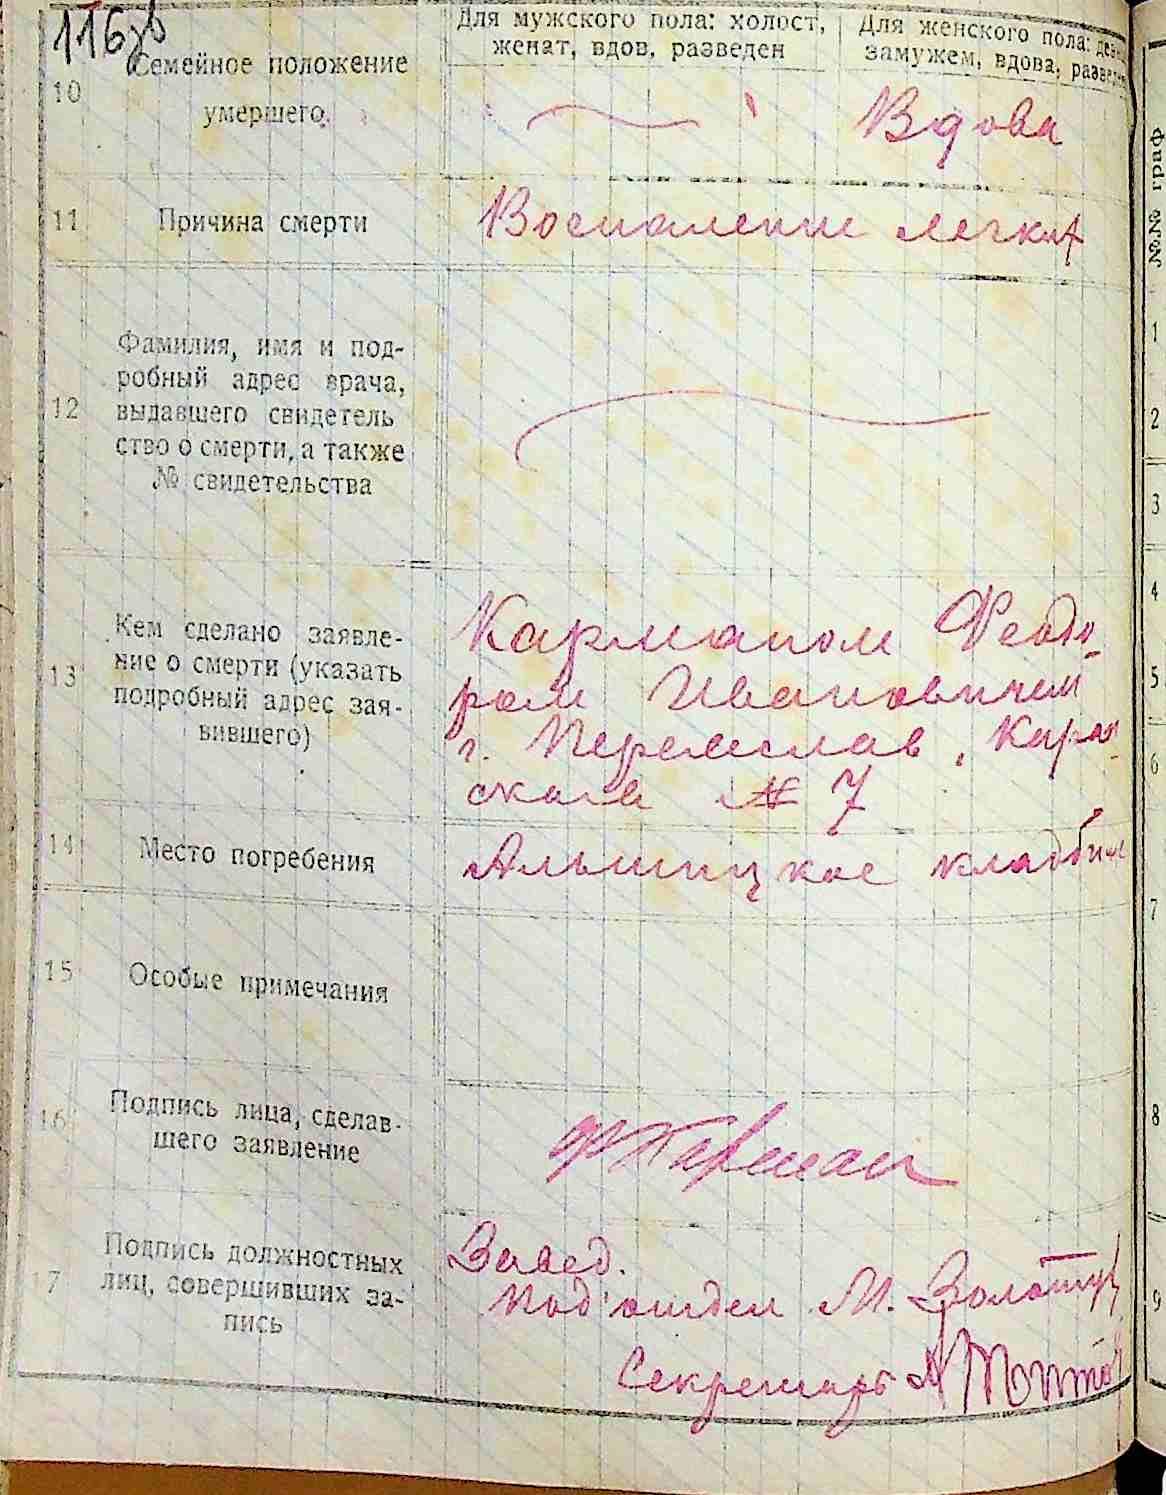 116зв
Для мужского пола: холост,
женат, вдов, разведен
Для женского пола:
замужем, вдова,
10
Семейное положение
умершего.
Вдова
11
Причина смерти
Воспаление легких
12
Фамилия, имя и под-
робный адрес врача,
выдавшего свидетель
ство о смерти, а также
№ свидетельства
13
Кем сделано заявле-
ние о смерти (указать
подробный адрес зая-
вившего)
Карманом Феодо-
ром Ивановичем
г. Переяслав,
№ 7
14
Место погребения
Альтицкое
15
Особые примечания
16
Подпись лица, сделав-
шего заявление
Ф Карман
17
Подпись должностных
лиц, совершивших за-
пись
Завед.
Под'отдел М.
Секретарь
№№ граф
1
2
3
4
5
6
7
8
9